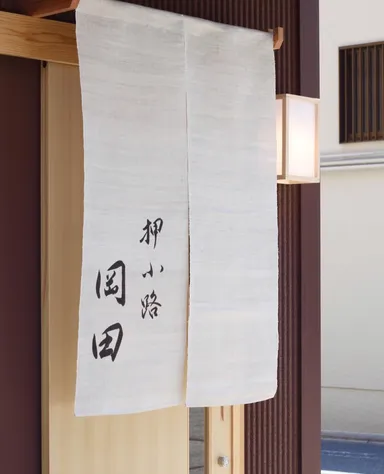 押小路
岡田